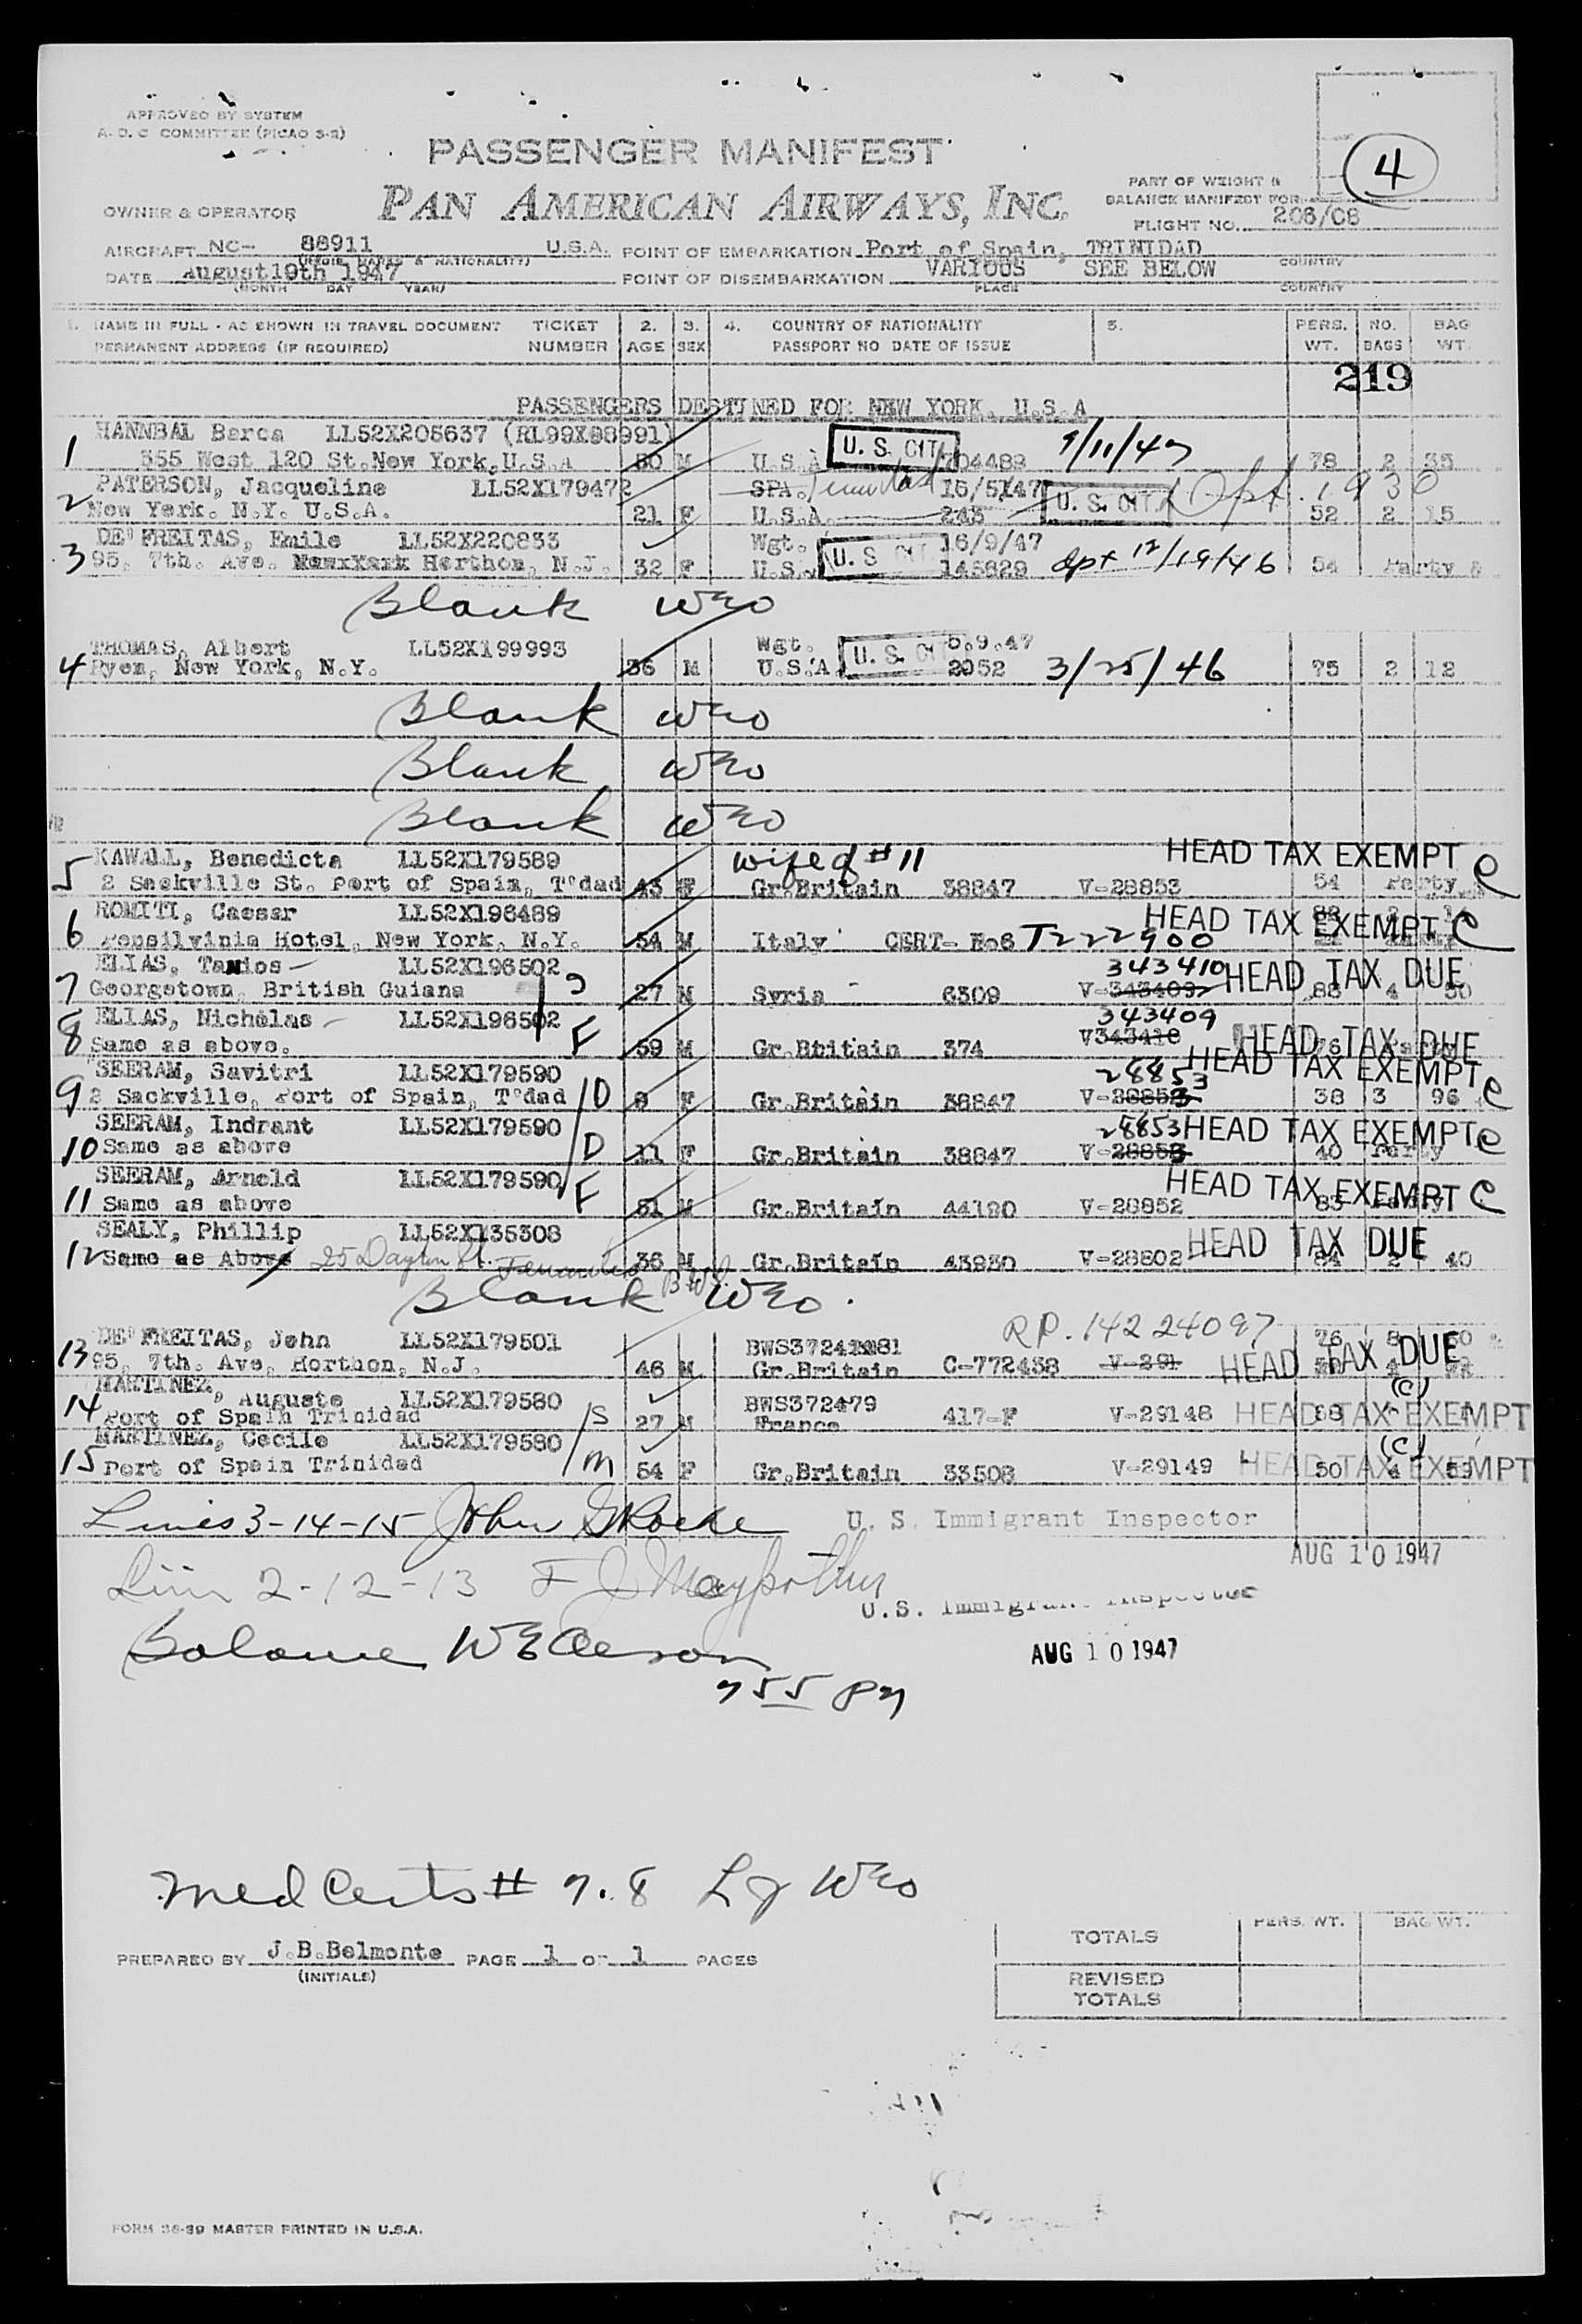 APPROVED BY SYSTEM
A.O.C COMMITTEE (PICAO S-2)
4
PASSENGER MANIFEST
PAN AMERICAN AIRWAYS, INC.
PART OF WEIGHT &
BALANCE MANIFEST FOR
OWNER & OPERATOR
FLIGHT NO. 206/08
AIRCRAFT NC- 88911 U.S.A. POINT OF EMBARKATION Port of Spain, TRINIDAD
& NATIONALITY) COUNTRY
DATE August 19th 1947 POINT OF DISEMBARKATION VARIOUS SEE BELOW
(MONTH DAY YEAR) PLACE COUNTRY
1. NAME IN FULL - AS SHOWN IN TRAVEL DOCUMENT TICKET 2. 3. 4. COUNTRY OF NATIONALITY 5. PERS. NO. BAG
PERMANENT ADDRESS (IF REQUIRED) NUMBER AGE SEX PASSPORT NO DATE OF ISSUE WT. BAGS WT.
219
PASSENGERS DESTINED FOR NEW YORK, U.S.A
HANNBAL Berca LL52X205637 (RL99X98991) U. S. CIT
1 355 West 120 St. New York, U.S.A 50 M U.S.A 04488 78 2 35
PATERSON, Jacqueline LL52X179472 SPA. Trinidad 16/5/47 U. S. CIT. Opt. 1930
2 New York. N.Y. U.S.A. 21 F U.S.A. 243 52 2 15
DE' FREITAS, Emile LL52X220833 Wgt. 16/9/47
3 95, 7th. Ave. Horthon, N.J. 32 F U.S. U. S CIT 145829 Opt 12/19/46 54 Party &
Blank WEO
THOMAS, Albert LL52X199993 Wgt. U. S. CIT 5.9.47
4 Ryen, New York, N.Y. 36 M U.S.A 2952 3/25/46 75 2 12
Blank WEO
Blank WEO
Blank WEO
KAWALL, Benedicta LL52X179589 wife of #11 HEAD TAX EXEMPT C
5 2 Sackville St. Port of Spain, T'dad 43 F Gr.Britain 38847 V-28853 54 Party
ROMITI, Caesar LL52X196489 HEAD TAX EXEMPT C
6 Pensilvinia Hotel, New York, N.Y. 54 M Italy CERT- No6 T222900
ELIAS, Tanios LL52X196502 343410 HEAD TAX DUE
7 Georgetown, British Guiana 27 M Syria 6309 V-343409 88 4 50
ELIAS, Nicholas LL52X196502 343409
8 Same as above. F 59 M Gr.Britain 374 V343410 HEAD TAX DUE
SEERAM, Savitri LL52X179590 28853 HEAD TAX EXEMPT C
9 2 Sackville, Port of Spain, T'dad D 9 F Gr.Britain 38847 V-28852 38 3 96
SEERAM, Indrant LL52X179590 28853 HEAD TAX EXEMPT C
10 Same as above D 11 F Gr.Britain 38847 V-28853 40 Party
SEERAM, Arnold LL52X179590 HEAD TAX EXEMPT C
11 Same as above F 51 M Gr.Britain 44190 V-28852 83
SEALY, Phillip LL52X135308 HEAD TAX DUE
12 Same as Above 25 Dayton St. 36 M Gr.Britain 43930 V-28802 84 2 40
Blank WEO.
DE' FREITAS, John LL52X179501 RP. 14224097
13 95, 7th. Ave, Horthon, N.J. 46 M Gr.Britain C-772438 V-291 HEAD TAX DUE
MARTINEZ, Auguste LL52X179580 BWS372479 (C)
14 Port of Spain Trinidad S 27 M France 417-F V-29148 HEAD TAX EXEMPT
MARTINEZ, Cecile LL52X179580 (C)
15 Port of Spain Trinidad M 54 F Gr.Britain 33508 V-29149 HEAD TAX EXEMPT 50 4
Lines 3-14-15 John U. S. Immigrant Inspector
AUG 10 1947
Line 2-12-13
U.S. Immigrant Inspector
Balance
AUG 10 1947
755 PM
Med Certs # 7.8 WEO
PREPARED BY J.B.Belmonte PAGE 1 OF 1 PAGES
(INITIALS)
PERS. WT. BAG WT.
TOTALS
REVISED
TOTALS
FORM 36-39 MASTER PRINTED IN U.S.A.